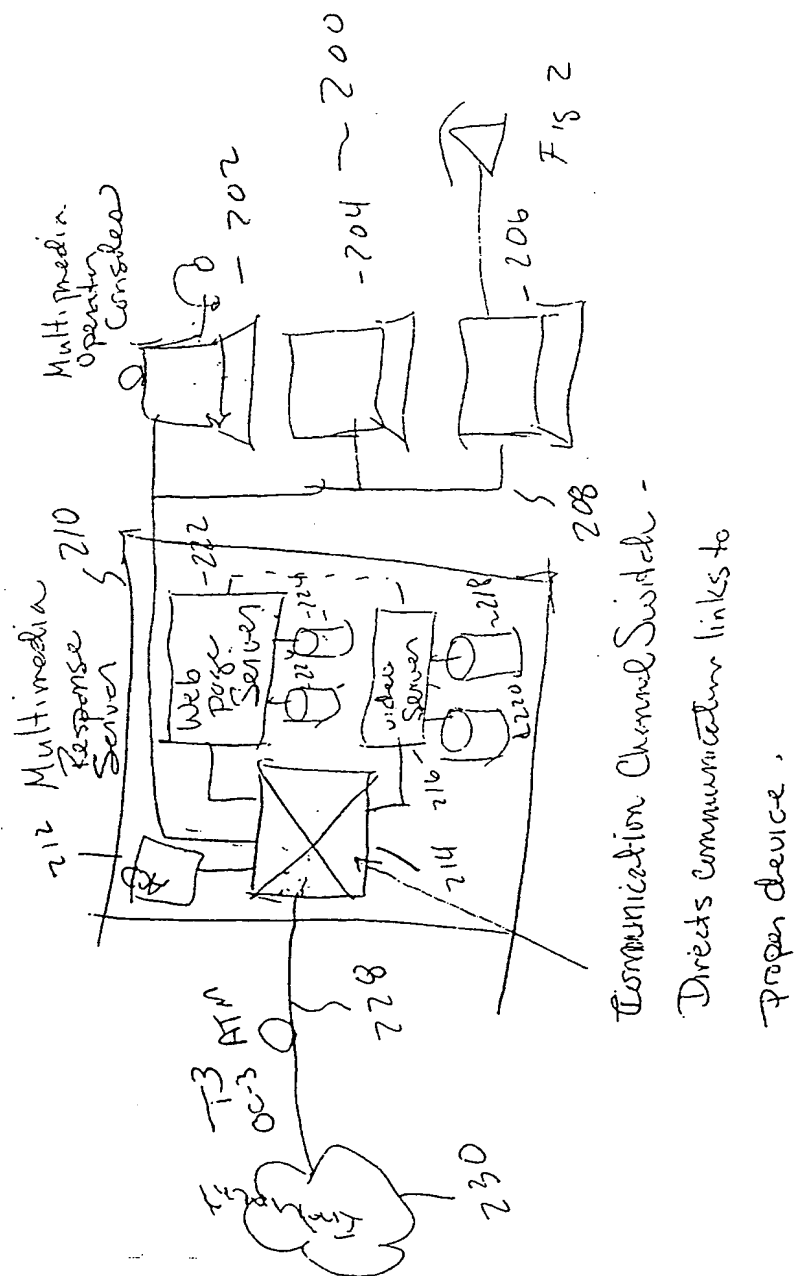 Multimedia
Operator
Consoles
- 202
- 204 ~ 200
- 206
Fig 2
208
Multimedia
Response
Server
210
212
- 222
Web
Page
Server
- 224
Video
Server
216 -
~ 218
220
214
T3
OC-3
ATM
228
230
Communication Channel Switch -
Directs communication links to
proper device.